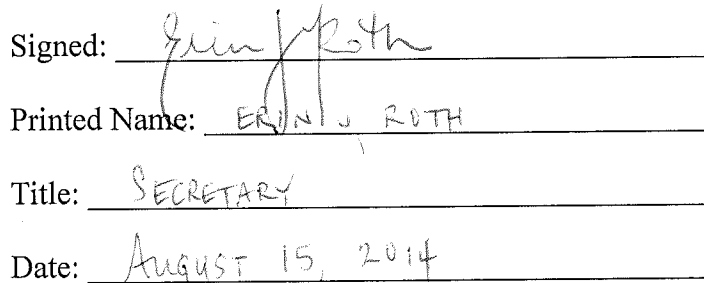 Signed: Erin J Roth
Printed Name: ERIN J ROTH
Title: SECRETARY
Date: AUGUST 15, 2014